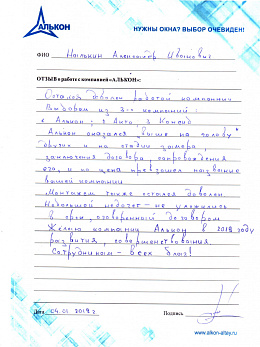 АЛЬКОН
НУЖНЫ ОКНА? ВЫБОР ОЧЕВИДЕН!
ФИО Александр Иванович
ОТЗЫВ о работе с компанией «АЛЬКОН»:
Остался доволен работой компании
Выбирал из 3-х компаний:
1 Алькон; 2 Авто 3 Консид
Алькон оказался выше на голову
других и на стадии замера,
заключения договора, сопровождения
его, и по цене превзошел названные
вашей компании
Монтажем также остался доволен
Небольшой недочет - не уложились
в срок, оговоренный договором
Желаю компании Алькон в 2018 году
развития, совершенствования.
Сотрудникам - всех благ!
Дата 04.01 2018 г. Подпись
www.alkon-altay.ru